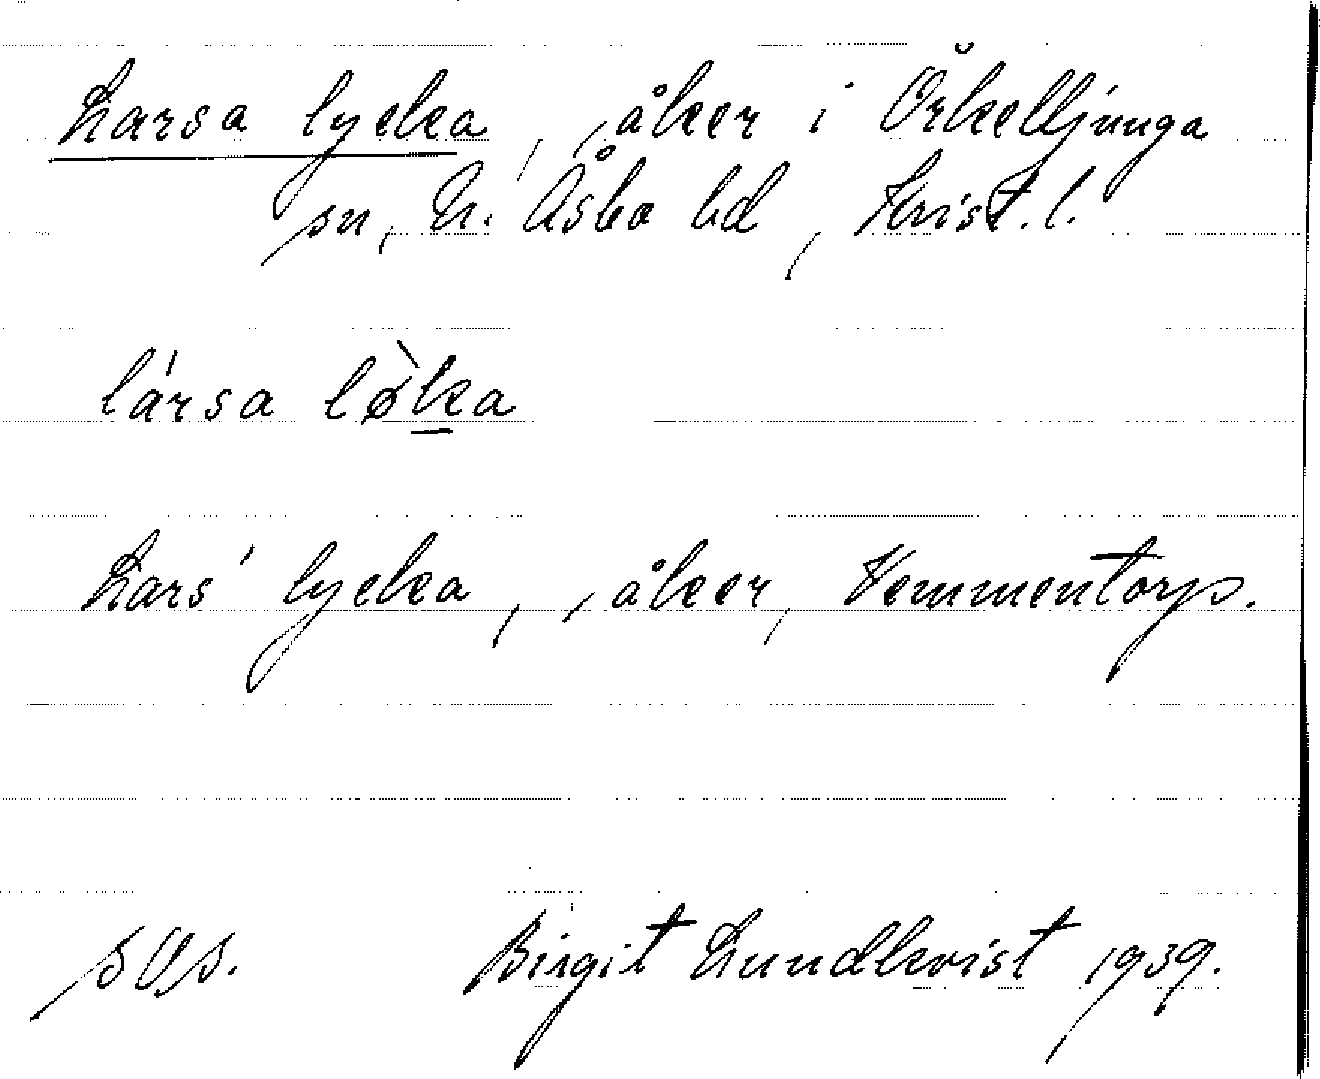 Larsa lycka, , åker i Örkelljunga
sn, N. Åsbo hd, Krist. l.
lársa lø̀ka
Lars' lycka, , åker, Vemmentorp.
Birgit Lundkvist 1939.